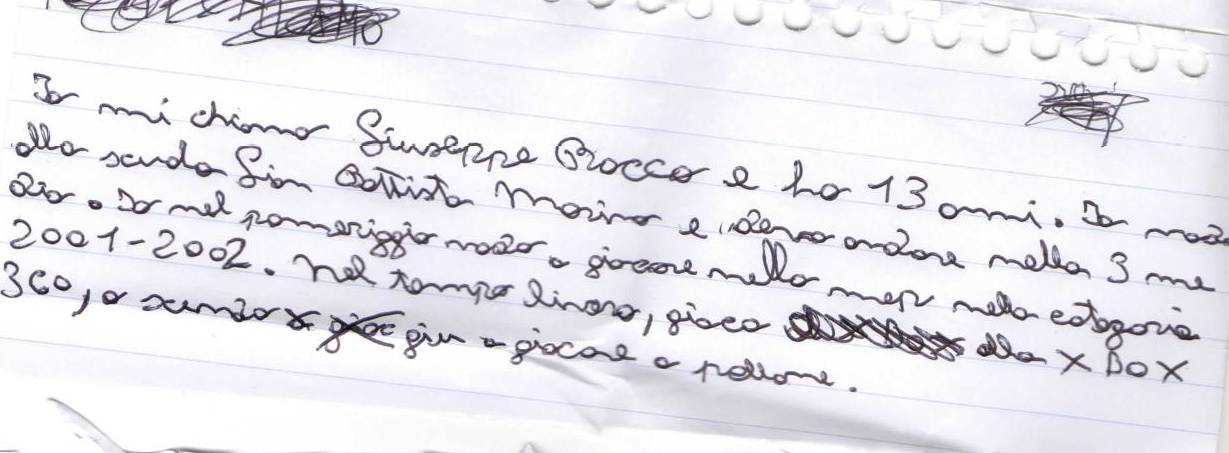 Io mi chiamo Giuseppe Procco e ho 13 anni. Io vado
alla scuola Gian Battista Marino e devo andare nella 3 me
dia. Io nel pomeriggio vado a giocare nella mepi nella categoria
2001-2002. Nel tempo linero, gioco alla X BOX
360, o scendo giu a giocare a pallone.